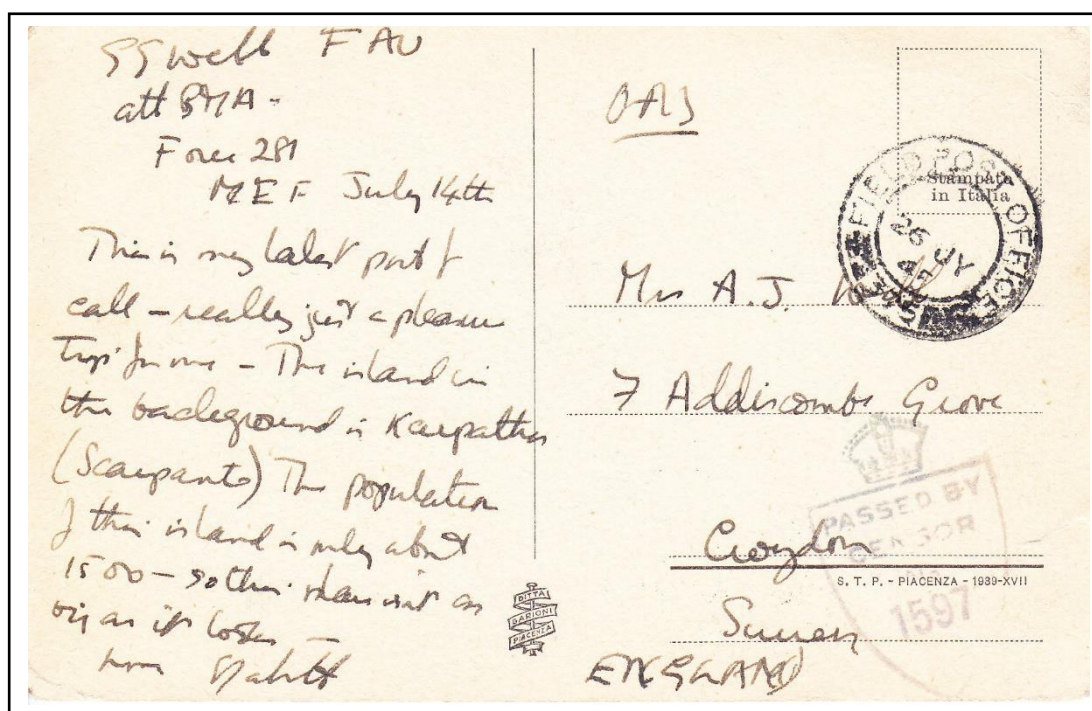 Webb FAU
att BMA -
Force 281
MEF July 14th
This is my latest port of
call – really just a pleasure
trip for me – The island in
the background is Karpathos
(Scarpanto) The population
of this island is only about
1500 – so this isn't as
big as it looks
OAS
Stampato
in Italia
FIELD POST OFFICE
26 JY
Mrs A.J.
7 Addiscombe Grove
Croydon
Surrey
ENGLAND
PASSED BY
CENSOR
No
1597
S. T. P. - PIACENZA - 1939-XVII
DITTA
GARIONI
PIACENZA